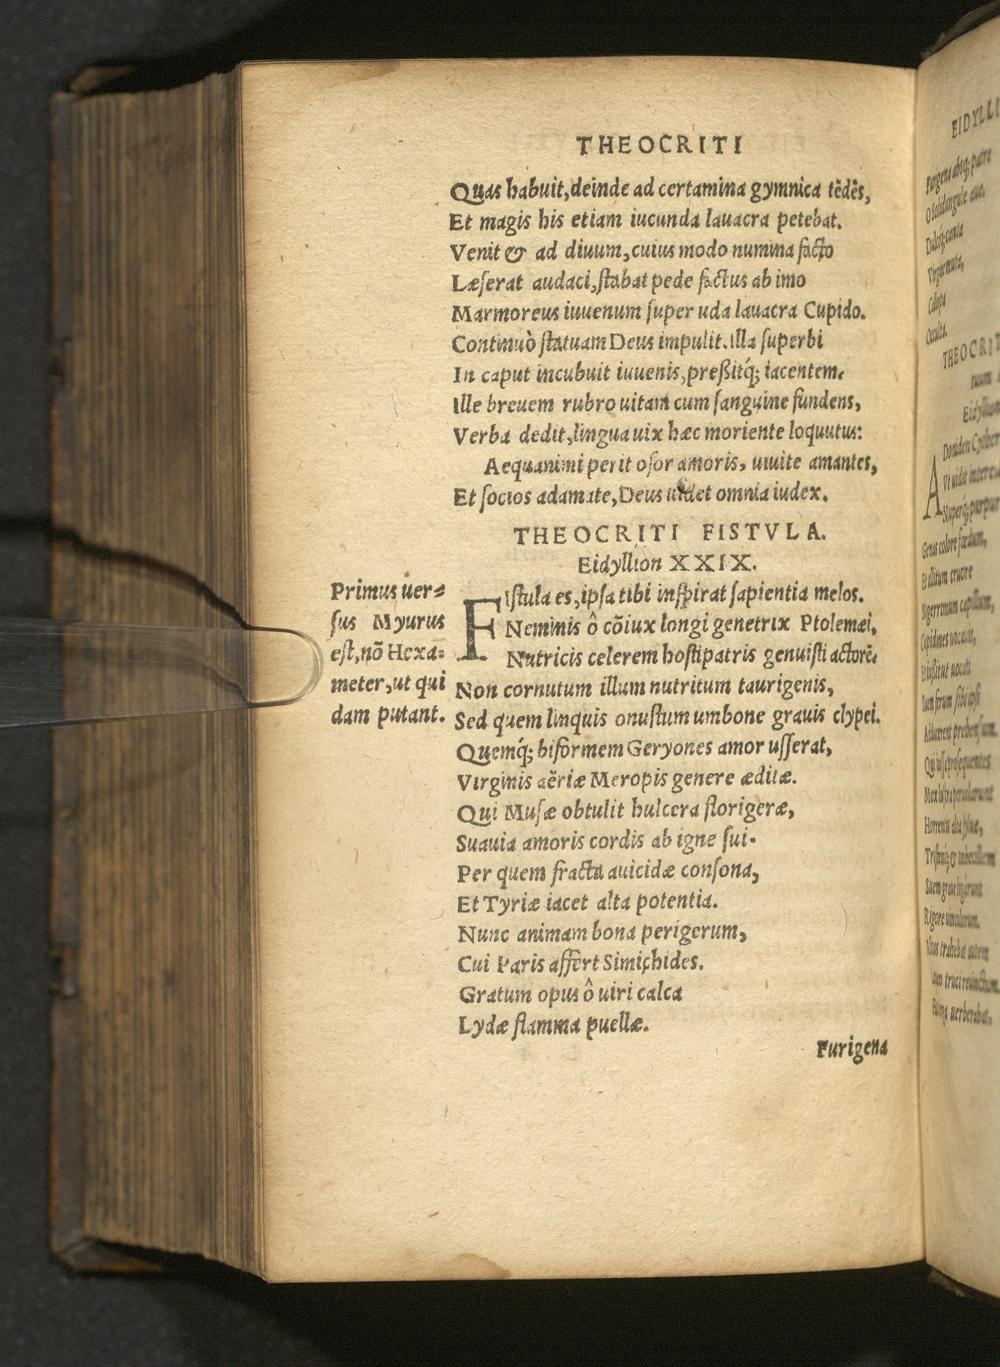 THEOCRITI
Quas habuit, deinde ad certamina gymnica tēdēs,
Et magis his etiam iucunda lauacra petebat.
Venit & ad diuum, cuius modo numina facto
Læſerat audaci, ſtabat pede factus ab imo
Marmoreus iuuenum ſuper uda lauacra Cupido.
Continuò ſtatuam Deus impulit. illa ſuperbi
In caput incubuit iuuenis, preßitq́; iacentem.
Ille breuem rubro uitam cum ſanguine fundens,
Verba dedit, lingua uix hæc moriente loquutus:
Aequanimi perit oſor amoris, uiuite amantes,
Et ſocios adamate, Deus uidet omnia iudex.
THEOCRITI FISTVLA.
Eidyllion XXIX.
Primus uer-
ſus Myurus
eſt, nō Hexa-
meter, ut qui
dam putant.
Fiſtula es, ipſa tibi inſpirat ſapientia melos.
Neminis ô cōiux longi genetrix Ptolemæi,
Nutricis celerem hoſtipatris genuiſti actorē.
Non cornutum illum nutritum taurigenis,
Sed quem linquis onuſtum umbone grauis clypei.
Quemq́; biformem Geryones amor uſſerat,
Virginis aëriæ Meropis genere æditæ.
Qui Muſæ obtulit hulcera florigeræ,
Suauia amoris cordis ab igne ſui.
Per quem fracta auicidæ conſona,
Et Tyriæ iacet alta potentia.
Nunc animam bona perigerum,
Cui Paris affert Simichides.
Gratum opus ô uiri calca
Lydæ flamma puellæ.
Furigena
EIDYLLI
Furigena absq; patre
O ſolidungulæ
Calopa
Occulta.
THEOCRIT
Eidyllion
Adonden Cyther
Vt uidit intere
Nuperq́; purpur
Genas colore fœdum,
Et illitum cruore
Nigerrimum capillum,
Cupidines uocauit,
Adducerent prehenſum.